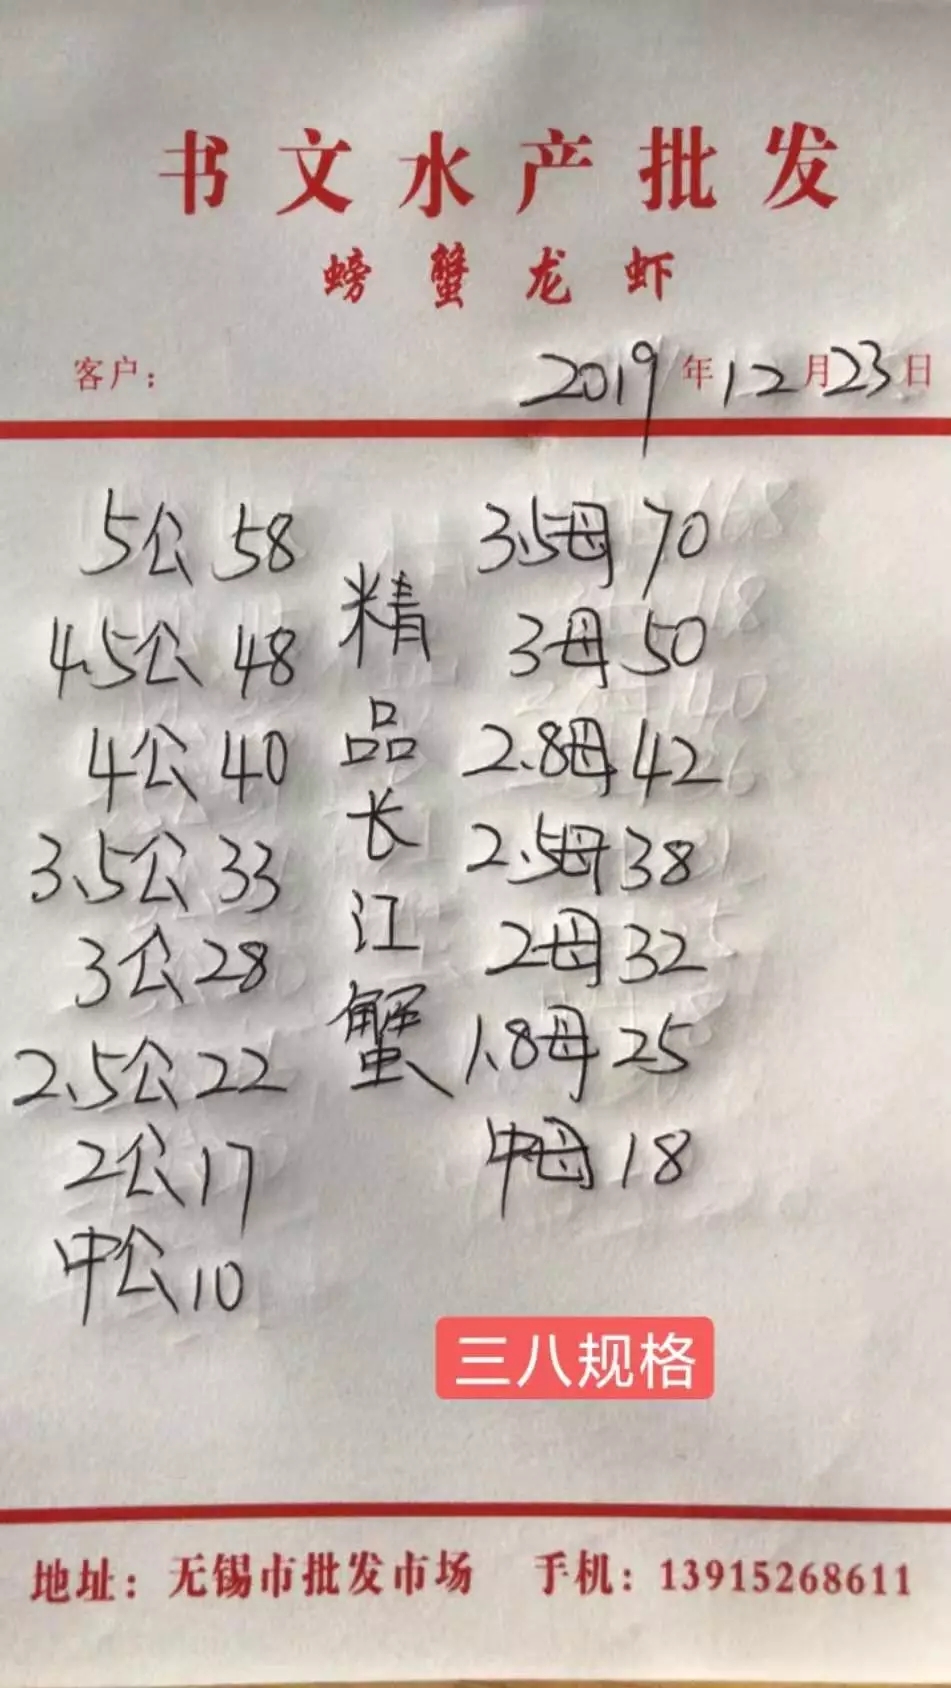 书文水产批发
螃蟹龙虾
客户： 2019年12月23日
5公 58
4.5公 48
4公 40
3.5公 33
3公 28
2.5公 22
2公 17
中公 10
精品长江蟹
3.5母 70
3母 50
2.8母 42
2.5母 38
2母 32
1.8母 25
中母 18
三八规格
地址：无锡市批发市场 手机：13915268611